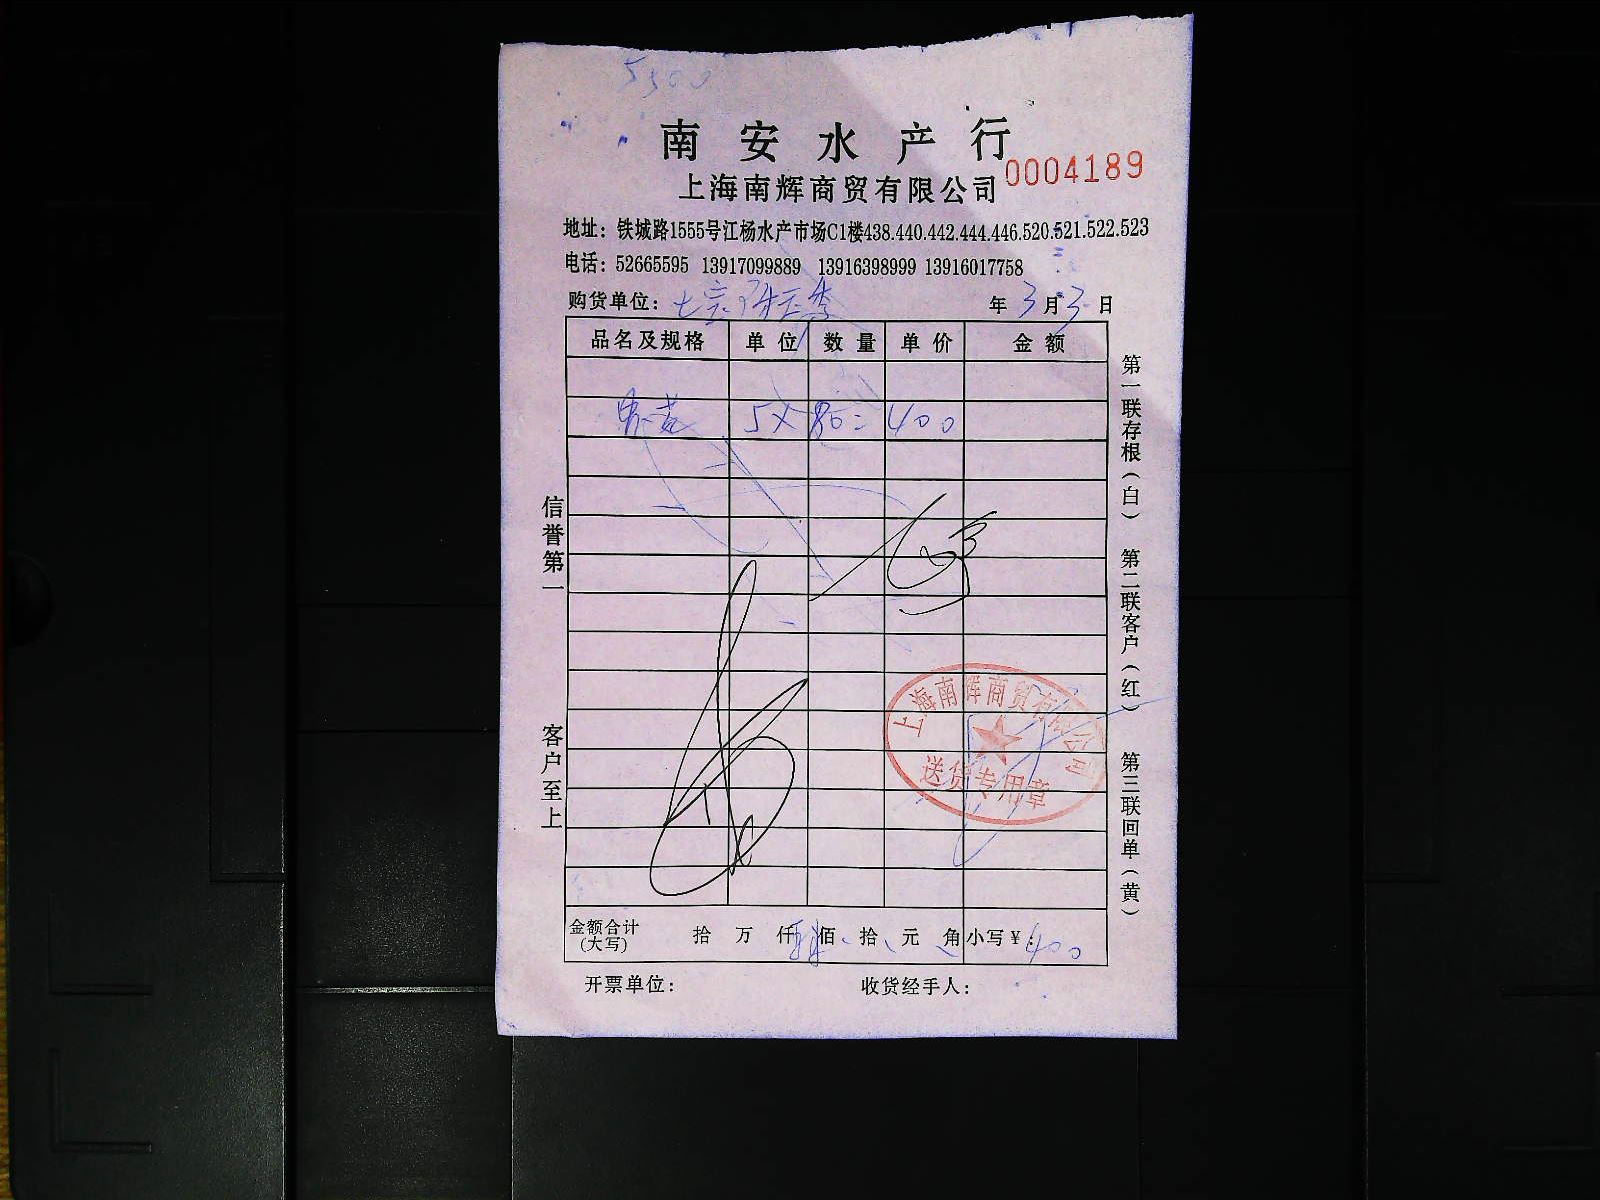 南安水产行
0004189
上海南辉商贸有限公司
地址：铁城路1555号江杨水产市场C1楼438.440.442.444.446.520.521.522.523
电话：52665595 13917099889 13916398999 13916017758
购货单位： 年3月3日
品名及规格 单位 数量 单价 金额
5×80=400
信誉第一
客户至上
第一联存根（白） 第二联客户（红） 第三联回单（黄）
上海南辉商贸有限公司
送货专用章
金额合计（大写） 拾 万 仟 肆佰 拾 元 角 小写￥：400
开票单位： 收货经手人：